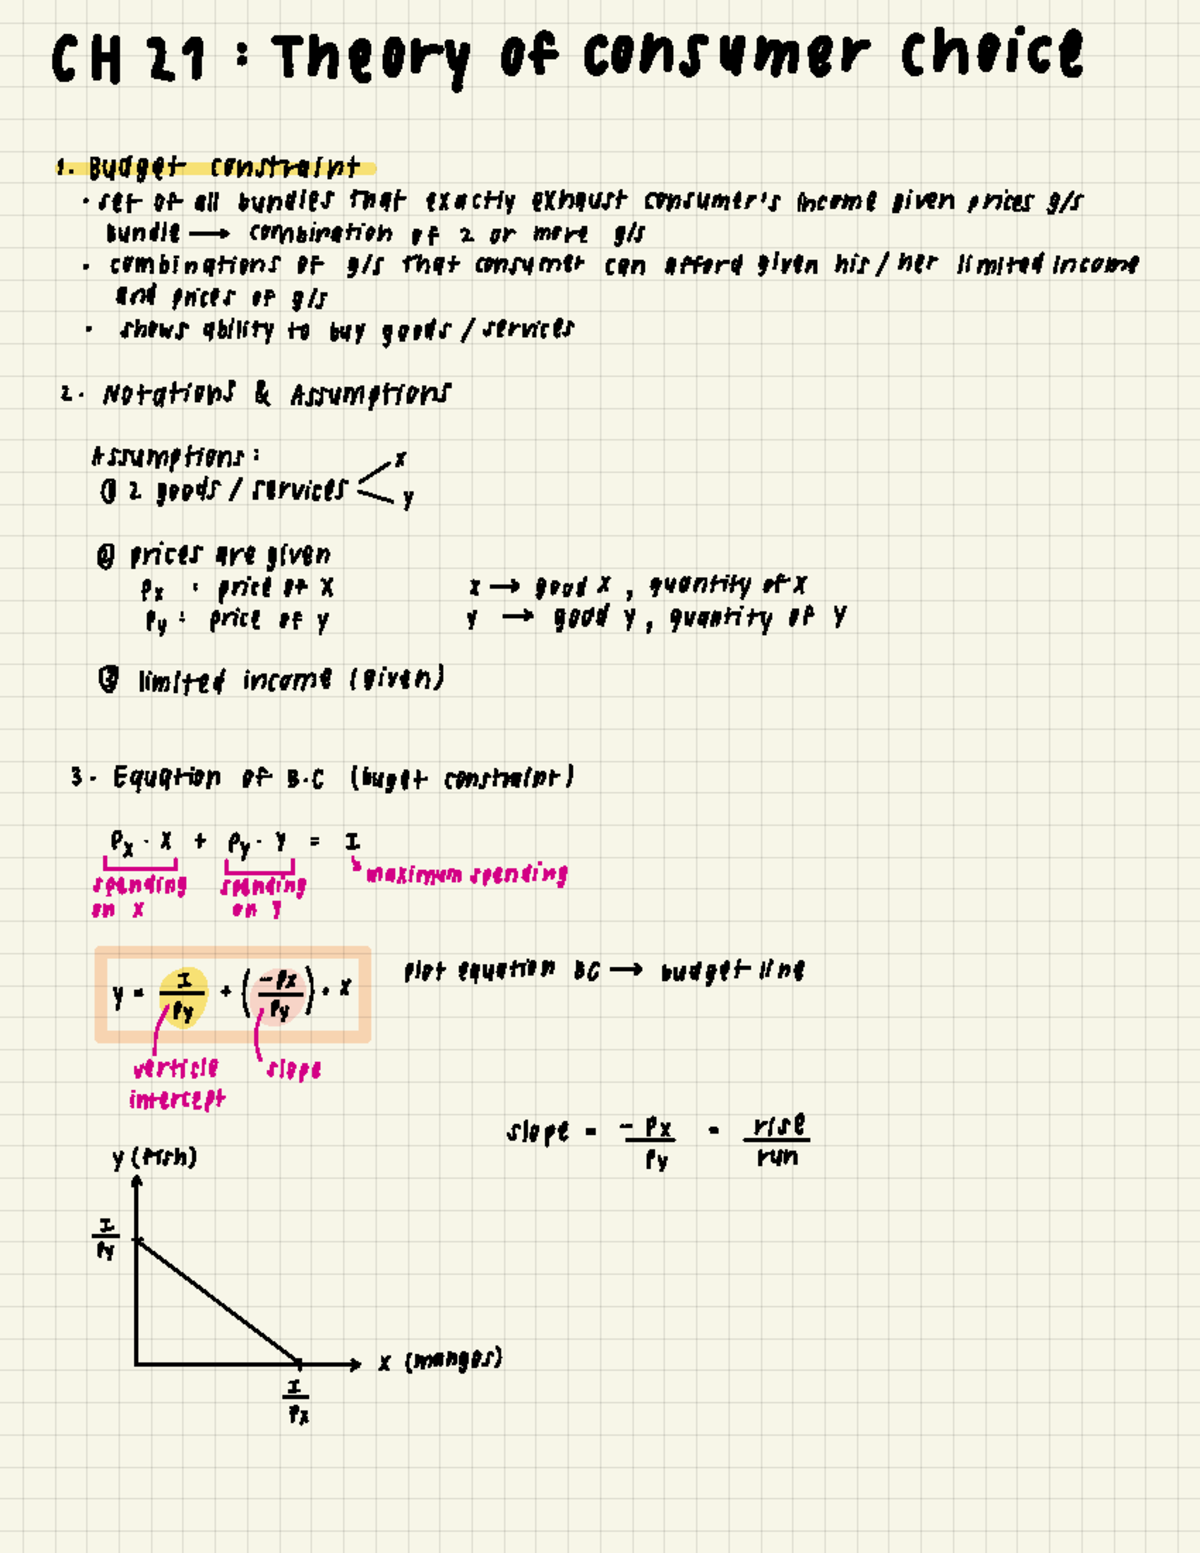 CH 21 : Theory of consumer choice
1. Budget constraint
· set of all bundles that exactly exhaust consumer's income given prices g/s
bundle → combination of 2 or more g/s
· combinations of g/s that consumer can afford given his / her limited income
and prices of g/s
· shows ability to buy goods / services
2. Notations & Assumptions
Assumptions :
① 2 goods / services
x
y
② prices are given
Px : price of X
x → good X , quantity of X
Py : price of y
y → good y , quantity of Y
③ limited income (given)
3. Equation of B.C (buget constraint)
Px · X + Py · Y = I
spending on X
spending on Y
maximum spending
y = I/Py + (-Px/Py) · X
plot equation BC → budget line
verticle intercept
slope
slope = -Px/Py = rise/run
y (fish)
I/Py
x (mangos)
I/Px